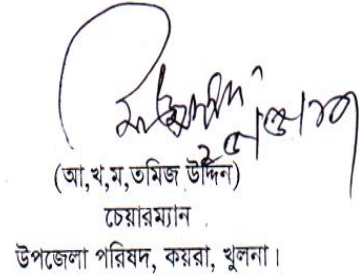 (আ,খ,ম,তমিজ উদ্দিন)
চেয়ারম্যান
উপজেলা পরিষদ, কয়রা, খুলনা।